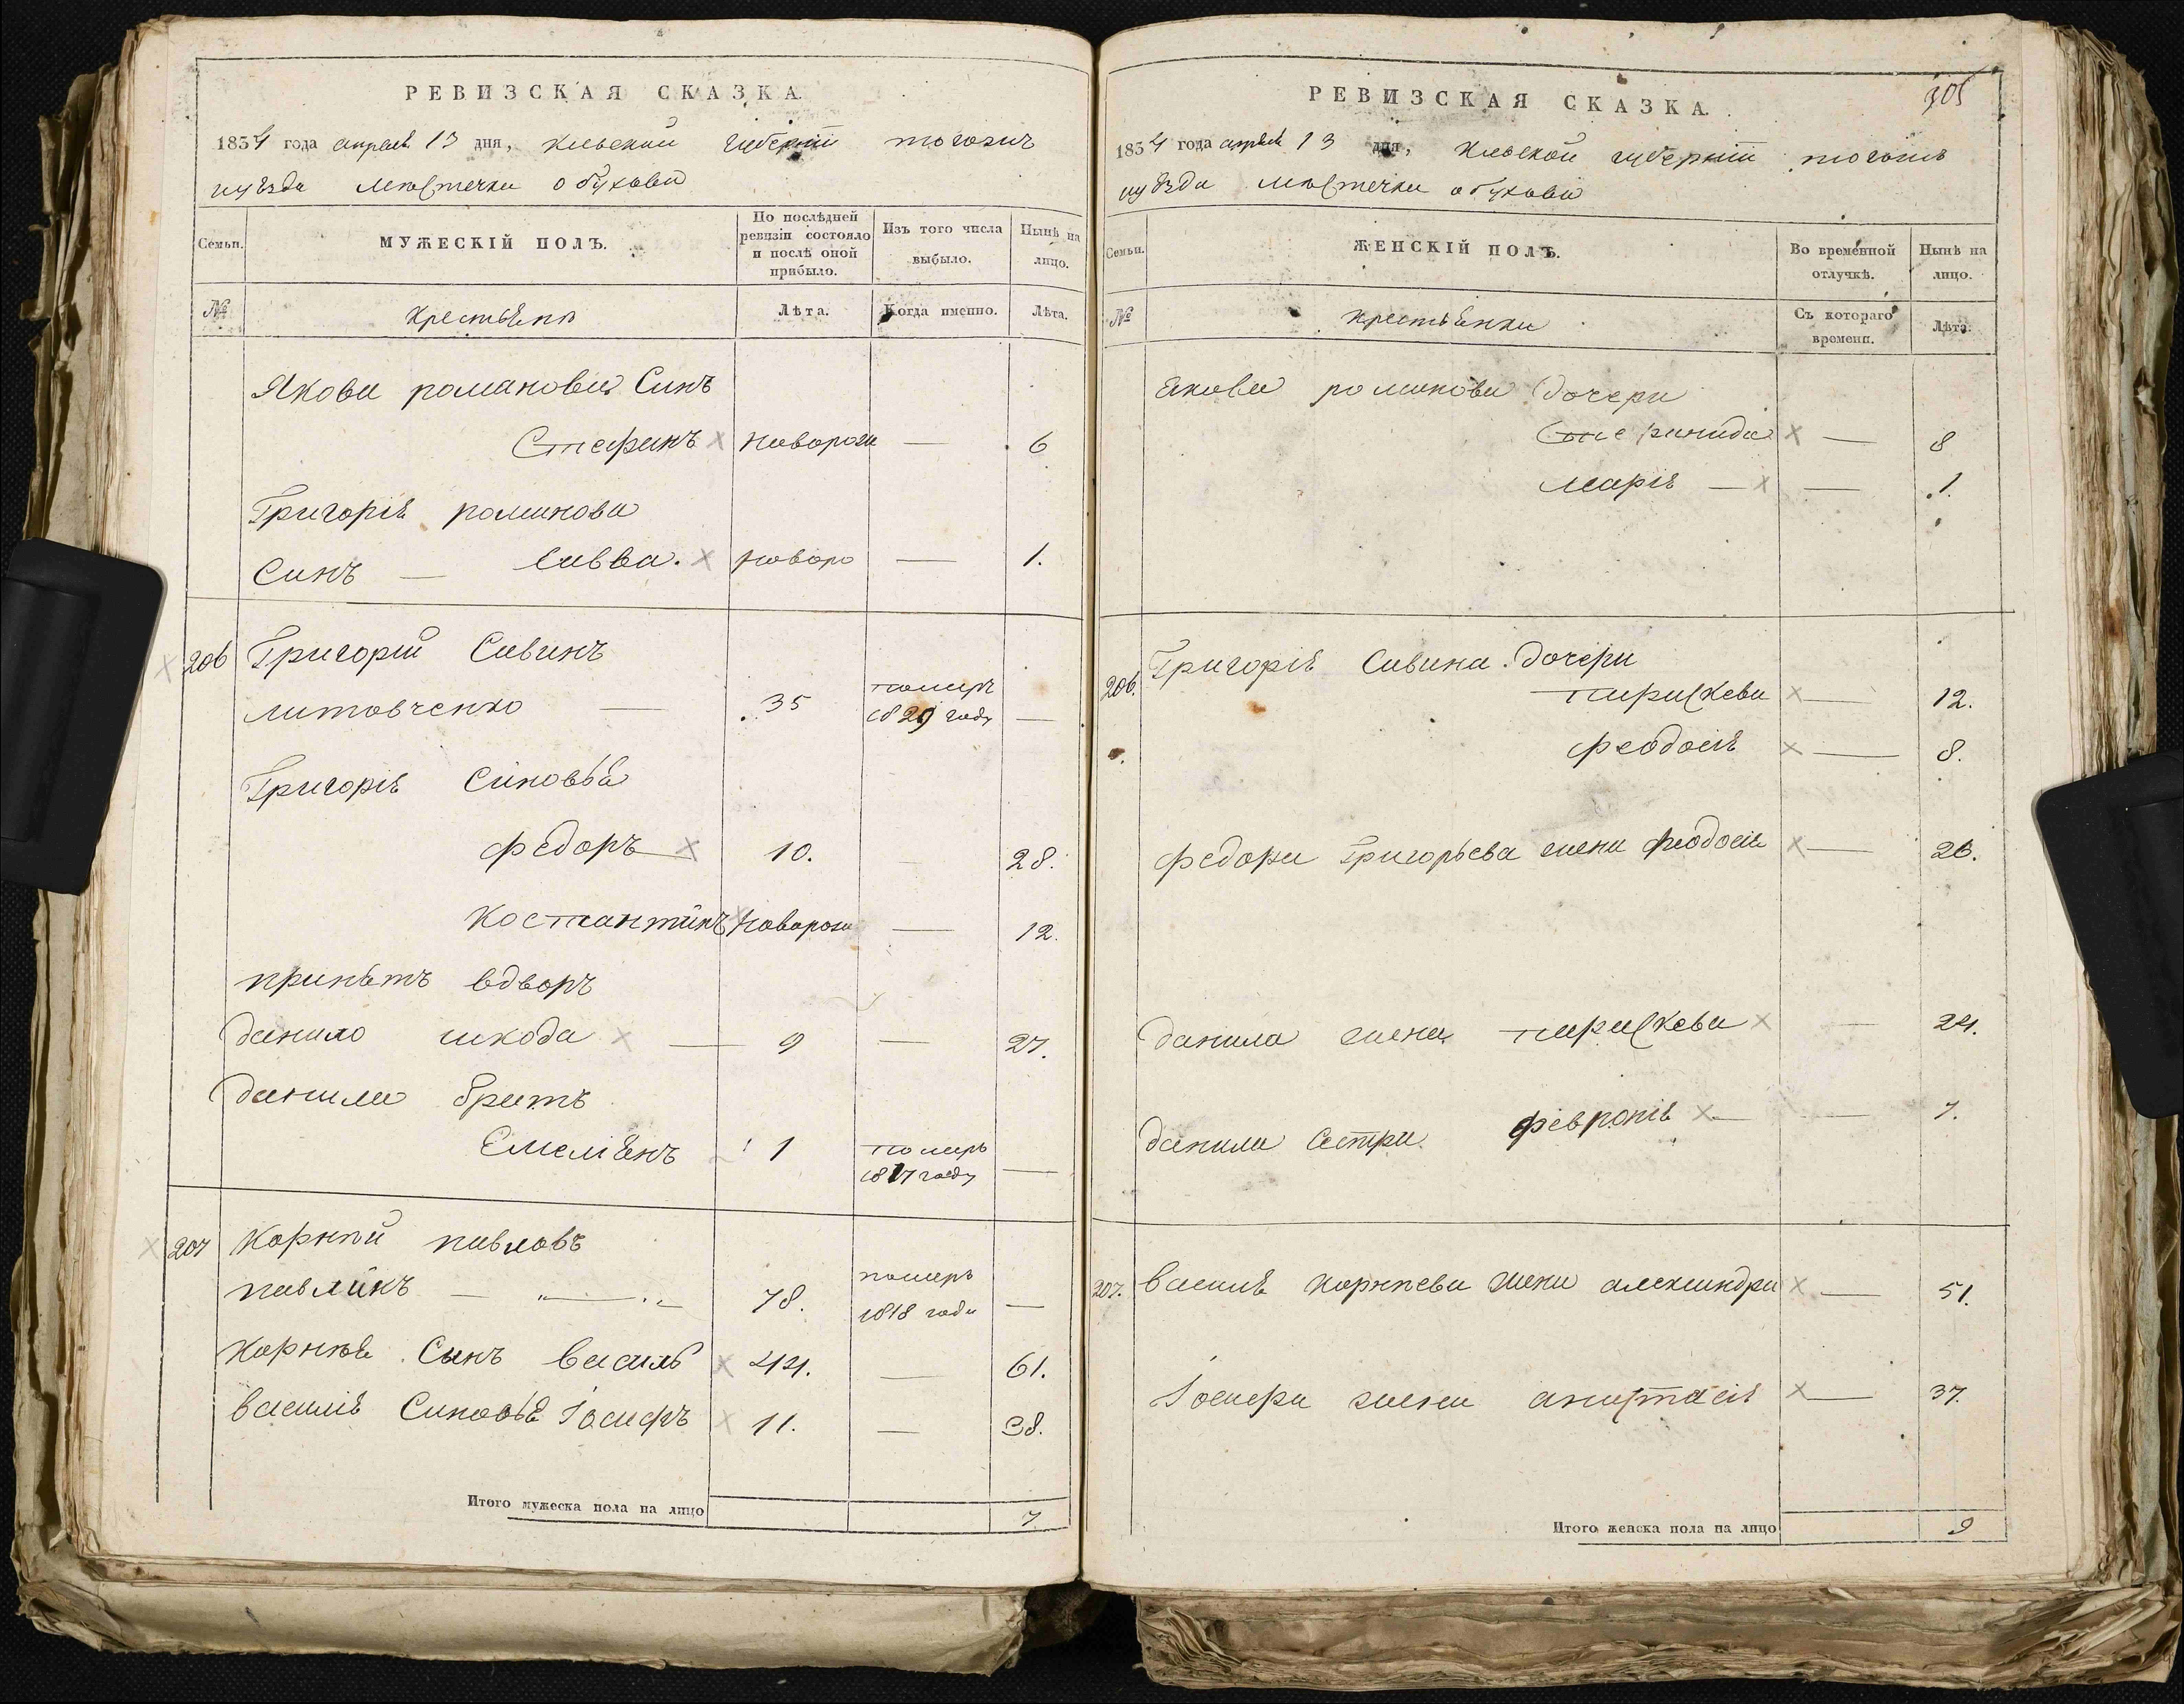 РЕВИЗСКАЯ СКАЗКА.
1834 года апреля 13 дня, Киевской губернiи тогожъ
уѣзда местечка обухова
Семьи.
МУЖЕСКIЙ ПОЛЪ.
По послѣдней ревизiи состояло и послѣ оной прибыло.
Изъ того числа выбыло.
Нынѣ на лицо.
№
крестьяня
Лѣта.
Когда именно.
Лѣта.
Якова романова Синъ
Стефанъ × Наворож — 6
Григорiя романова
Синъ — Савва. × Наворо — 1.
206 Григорiй Савинъ
литовченко — 35 помiръ 1829 году —
Григорiя Синовья
Федоръ × 10. — 28.
Костантинъ × Наворож — 12.
принятъ вдворъ
данило шкода × — 9 — 27.
данила братъ
Емелiянъ 1 помiръ 1817 году —
207 Корнiй павловъ
павликъ — 78. помiръ 1818 года —
Корнiя Сынъ Василь × 44. — 61.
Василiя Синовья Iосифъ × 11. — 38.
Итого мужеска пола на лицо 7
305
РЕВИЗСКАЯ СКАЗКА.
1834 года апреля 13 дня, Киевской губернiи тогожъ
уѣзда местечка обухова
Семьи.
ЖЕНСКIЙ ПОЛЪ.
Во временной отлучкѣ.
Нынѣ на лицо.
№
крестьянки
Съ котораго времени.
Лѣта.
Якова романова дочери
× — 8
Марiя — × — 1.
206. Григорiя Савина. дочери
параскева × — 12.
Феодосiя × — 8.
Федора Григорьева жена Феодосiя × — 26.
данила жена параскева × — 24.
данила Сестра Февронiя × — 7.
207. Василя Корнiева жена александра × — 51.
Iосифа жена анастасiя × — 37.
Итого женска пола на лицо 9